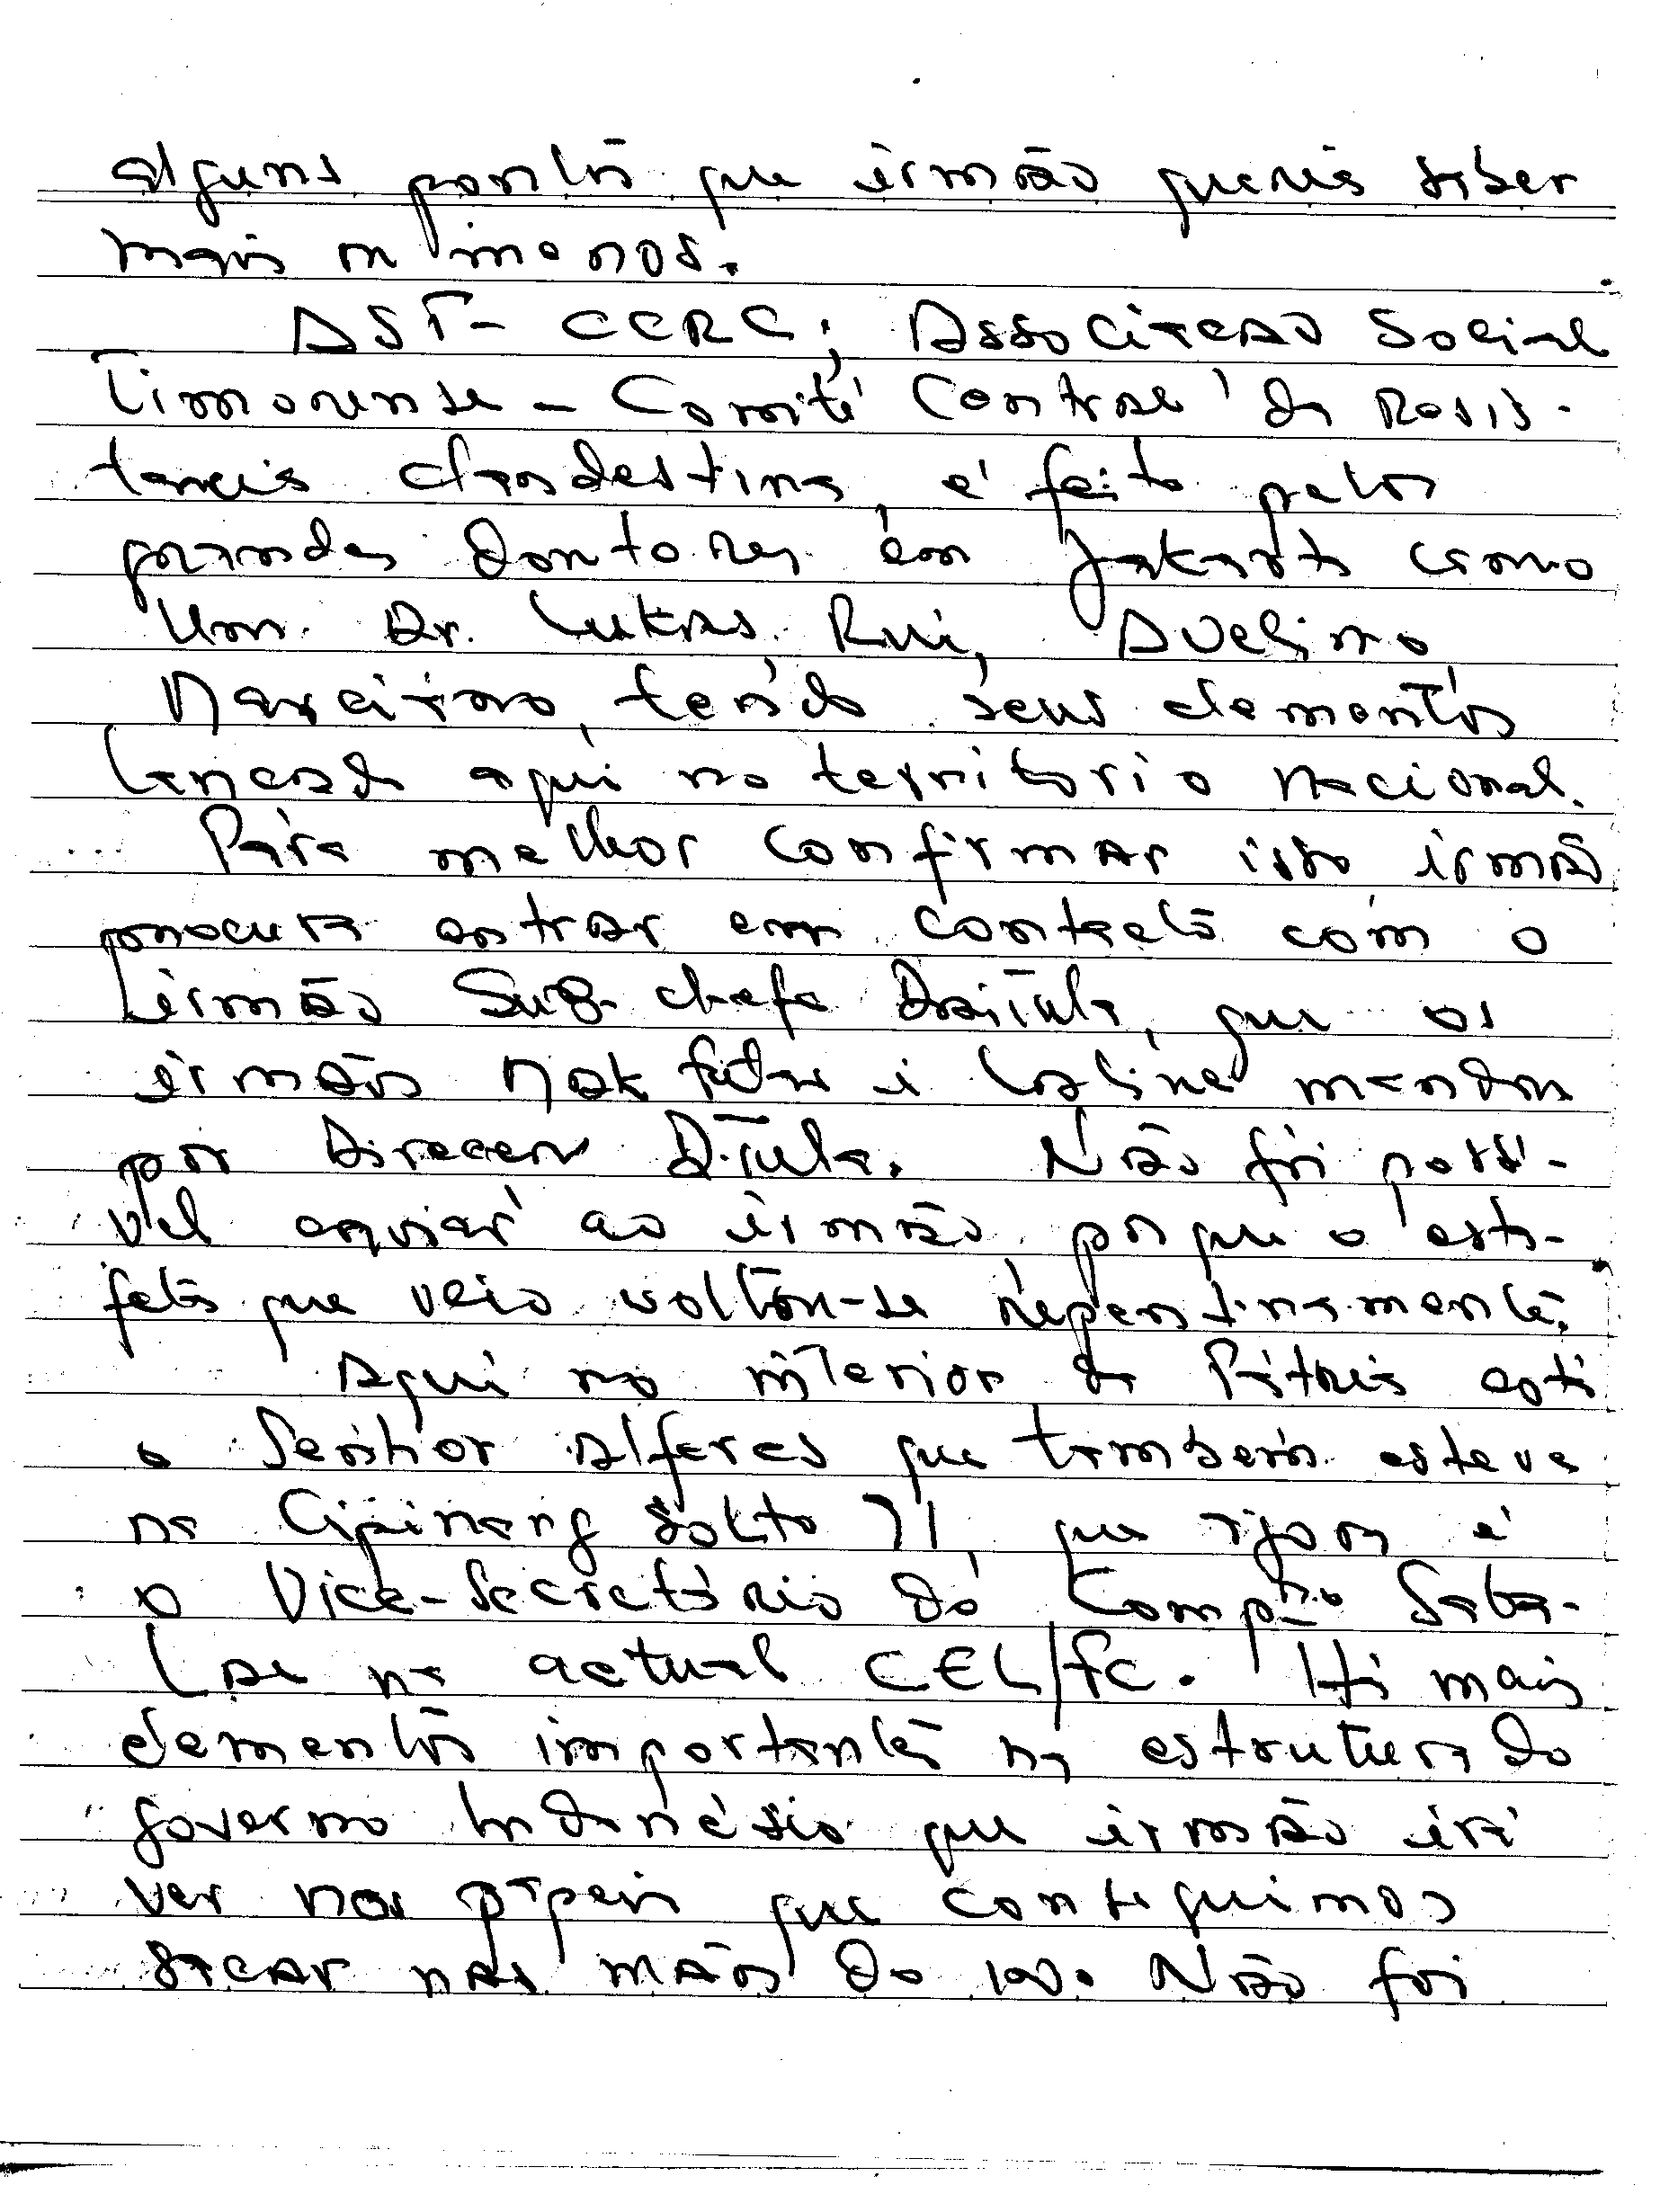 alguns pontos que irmão queria saber
mais ou menos.
AST - CCRC; Associacão Social
Timorense - Comité Central da Resis-
tencia clandestina, é feito pelos
grandes doutores em Jakarta como
um Dr. Lukas, Rui, Avelino
Marciano, tendo seus elementos
aqui no territorio nacional.
Para melhor confirmar isto irmão
procura entrar em contacto com o
irmão Sub-chefe que os
irmãos Mak futar i Laline mandou
por Direcem Não foi possi-
vel enviar ao irmão porque o esta-
feta que veio voltou-se repentinamente.
Aqui no interior da Pátria está
o Senhor Alferes que tambem esteve
na Cipinang que agora é
o Vice-Secretário do Saba-
Lae na actual CEL/FC. Há mais
elementos importantes na estrutura do
governo Indonésio que irmão irá
ver nos papeis que conseguimos
sacar nas mãos do Não foi